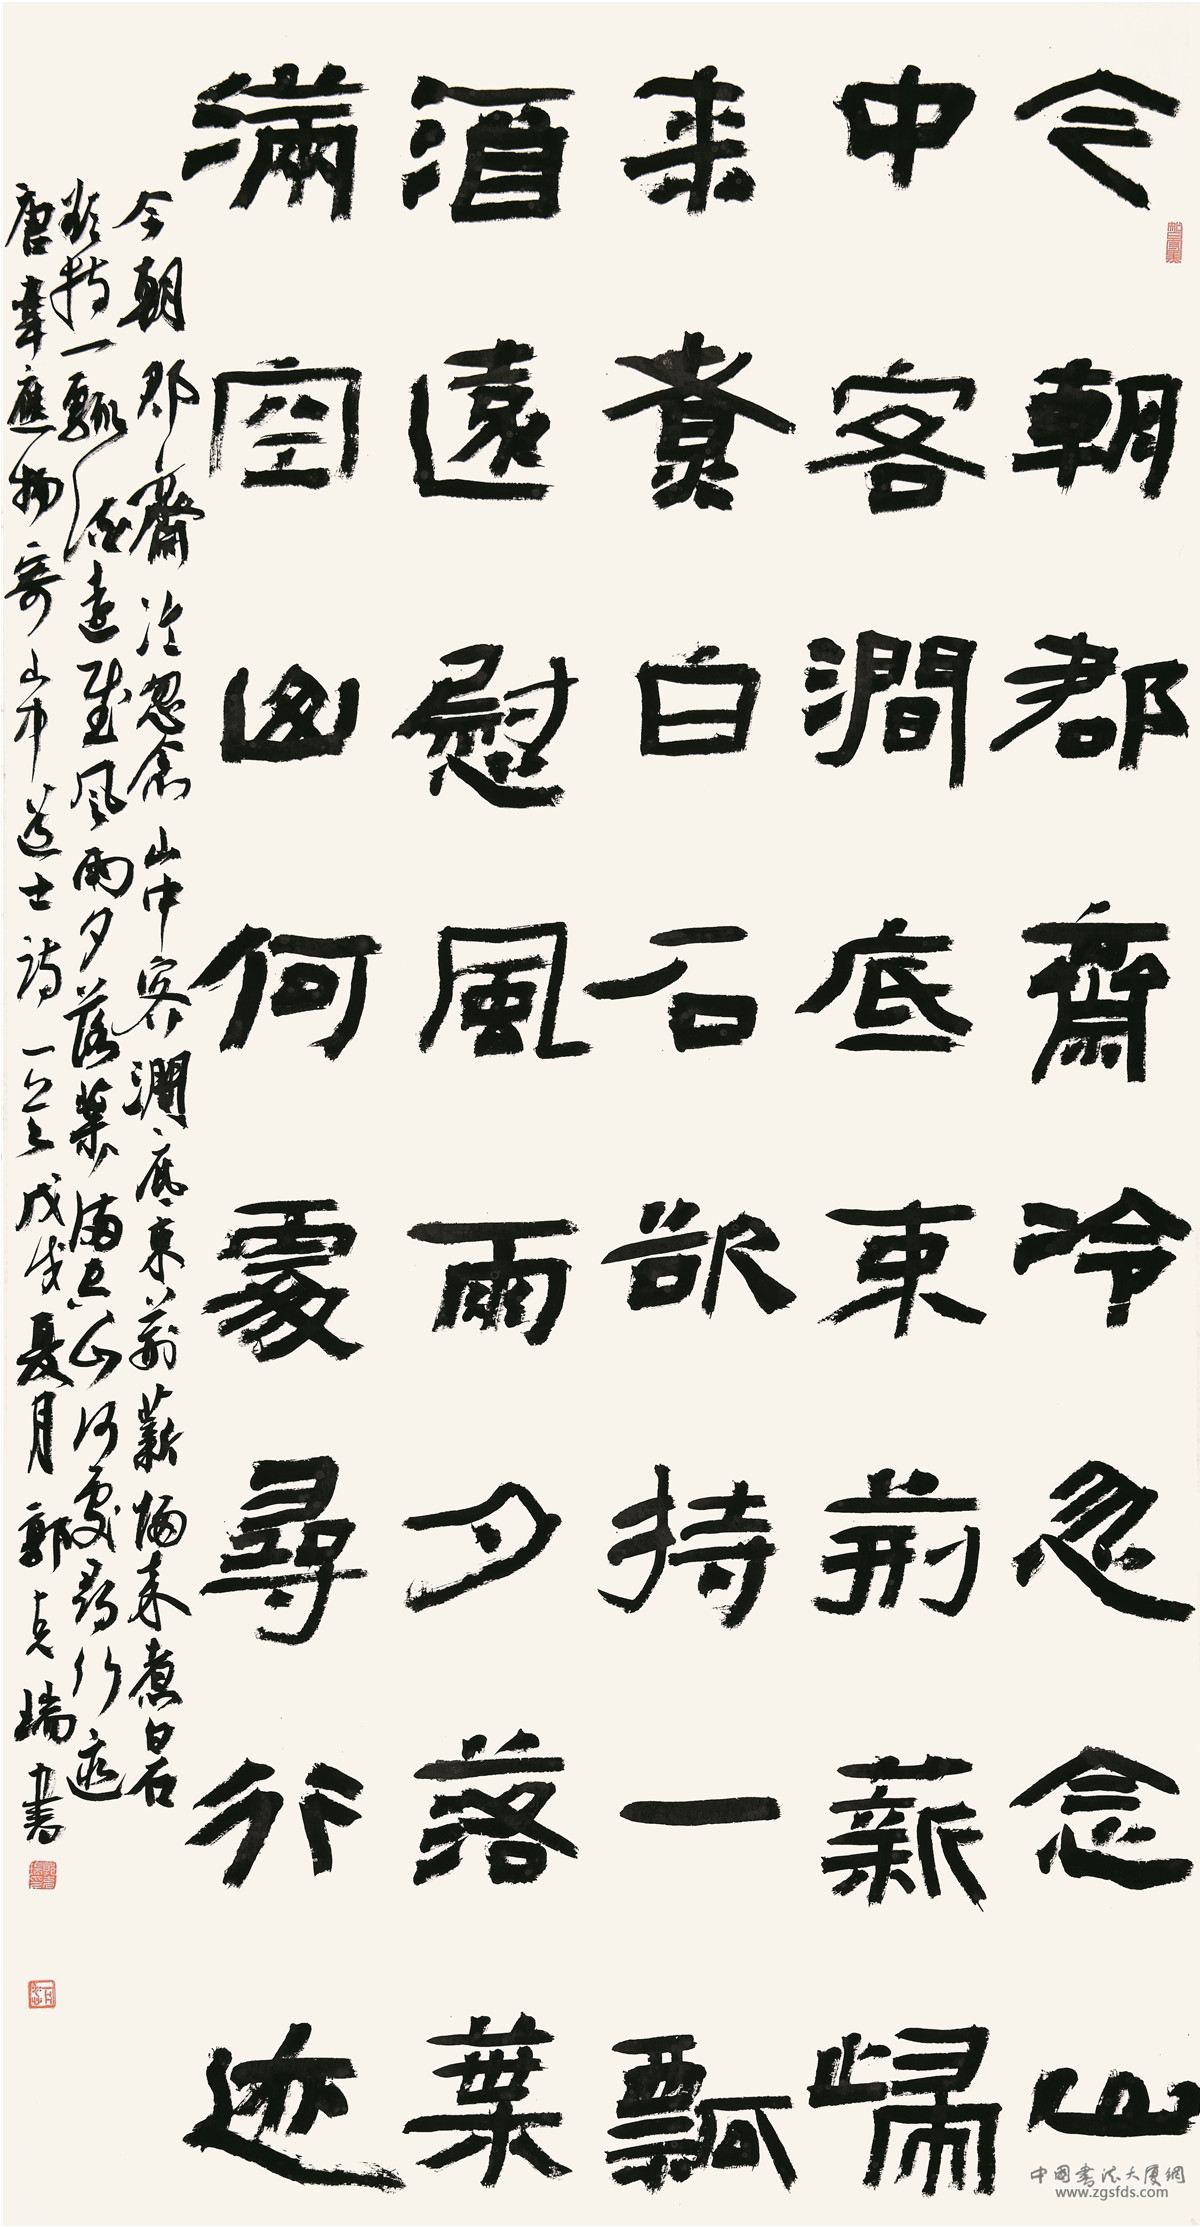 今朝郡齋冷忽念山
中客澗底束荊薪歸
来煮白石欲持一瓢
酒遠慰風雨夕落葉
滿空山何處尋行迹
今朝郡齋冷忽念山中客澗底束荊薪歸来煮白石
欲持一瓢酒遠慰風雨夕落葉滿空山何處尋行迹
唐韋應物寄山中道士詩一首戊戌夏月郭瑞書
中國書法大廈網
www.zgsfds.com